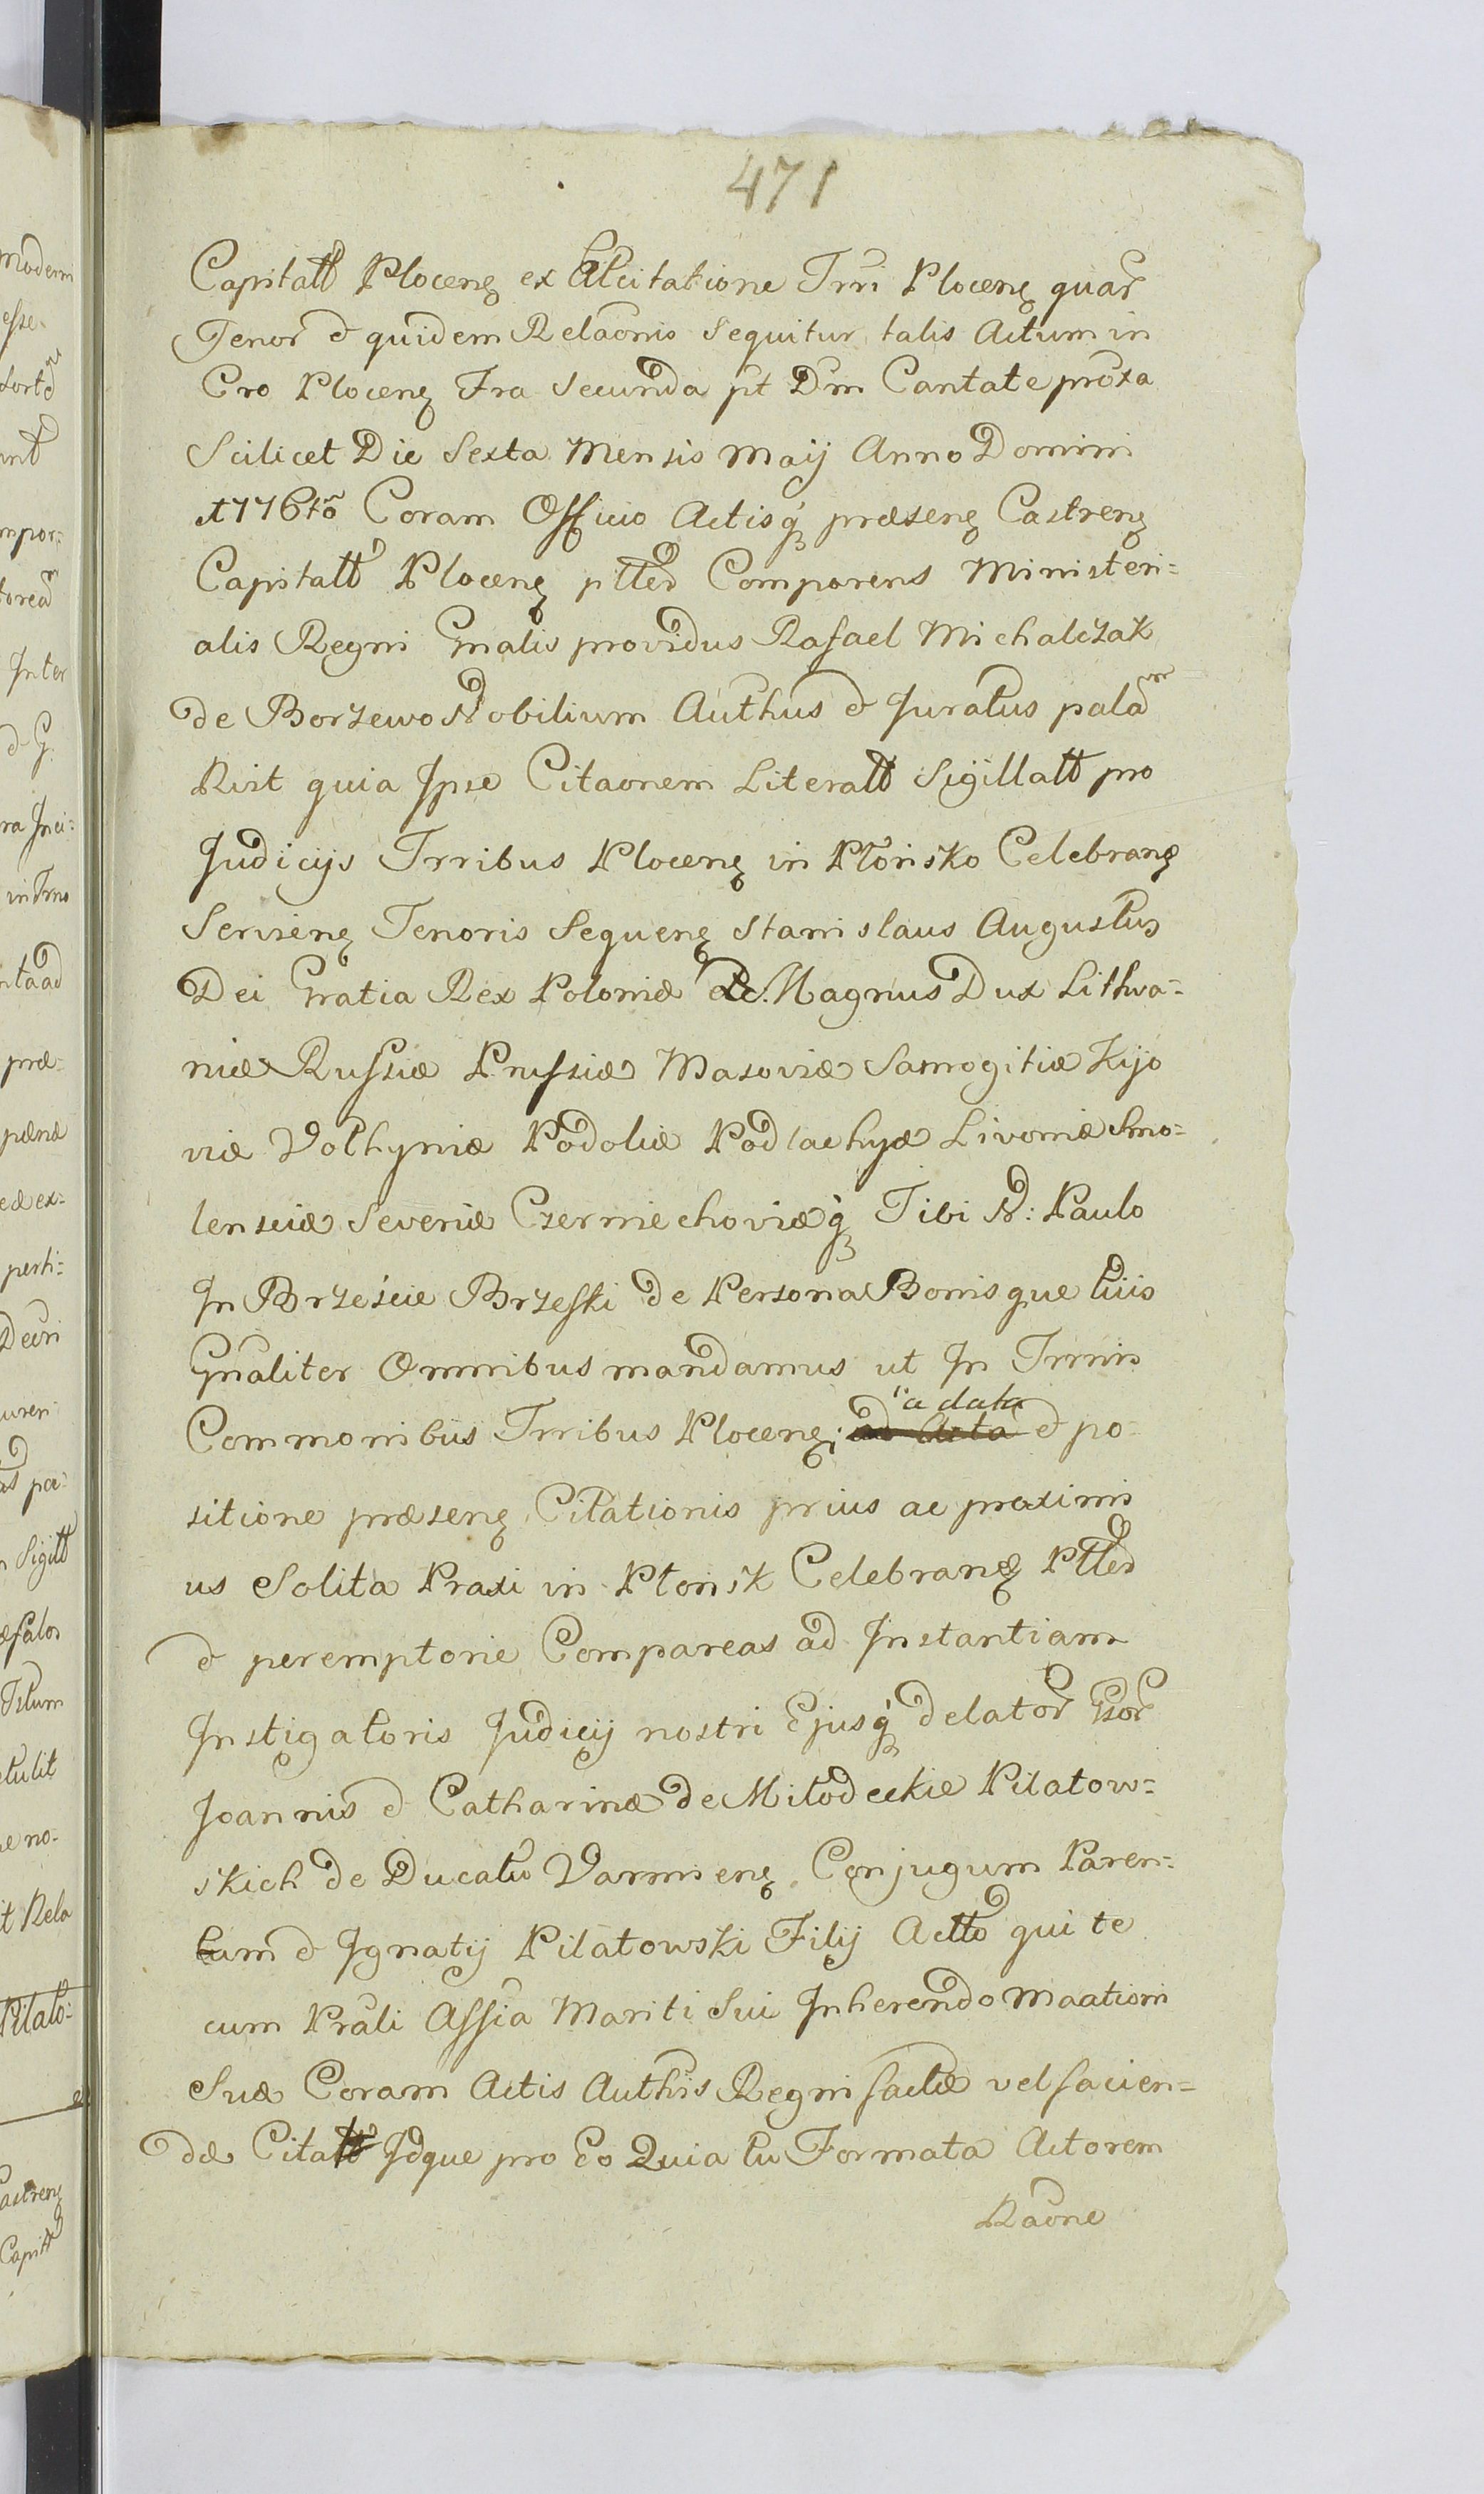 471
Capitall Plocenꝫ ex Citatione Trri Plocenꝫ quar
Tenor & quidem Relaonis Sequitur talis Actum in
Cro Plocenꝫ Fra Secunda pt Dm Cantate proxa
Scilicet Die Sexta Mensis Maij Anno Domini
1776to Coram Officio Actisq́ præsenꝫ Castrenꝫ
Capitall Plocenꝫ pllr Comparens Ministeri=
alis Regni Gnalis providus Rafael Michalczak
de Borzewo Nobilium Authus & Juratus palam
Rist quia Ipse Citaonem Literall Sigillall pro
Judicijs Trribus Plocenꝫ in Płońsko Celebranꝫ
Servienꝫ Tenoris Sequenꝫ Stanislaus Augustus
Dei Gratia Rex Poloniæ &c. Magnus Dux Lithva=
niæ Russiæ Prussiæ Masoviæ Samogitiæ Kijo
viæ Volhyniæ Podoliæ Podlachyæ Livoniæ Smo=
lensciæ Severiæ Czerniechoviæq́ Tibi N: Paulo
In Brzeście Brzeski de Persona Bonisque tuis
Gnaliter Omnibus mandamus ut In Trmis
Commonibus Trribus Plocenꝫ; ad Acta & po-
a data
sitione præsenꝫ Citationis prius ac proximi
us Solita Praxi in Płońsk Celebranꝫ Pllr
& peremptorie Compareas ad Instantiam
Instigatoris Judicij nostri Ejusq́ delator Gsor
Joannis & Catharinæ de Miłodeckie Pilatow=
skich de Ducatu Varmienꝫ Conjugum Paren=
tum & Ignatij Pilatowski Filij Actto qui te
cum Prali Assia Mariti Sui Inherendo Maationi
Suæ Coram Actis Authis Regni factæ vel facien=
dæ Citatt Idque pro Eo Quia tu Formata Actorem
Raone